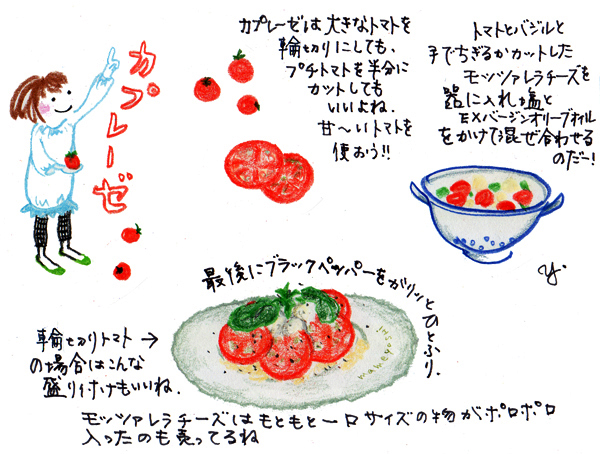 カプレーゼ
カプレーゼは大きなトマトを
輪切りにしても、
プチトマトを半分に
カットしても
いいよね。
甘〜いトマトを
使おう!!
トマトとバジルと
手でちぎるかカットした
モッツァレラチーズを
器に入れ塩と
EXバージンオリーブオイル
をかけて混ぜ合わせる
のだー!
最後にブラックペッパーをガリッとひとふり。
輪切りトマト →
の場合はこんな
盛り付けもいいね。
mameyoshi
モッツァレラチーズはもともと一口サイズの物がポロポロ
入ったのも売ってるね